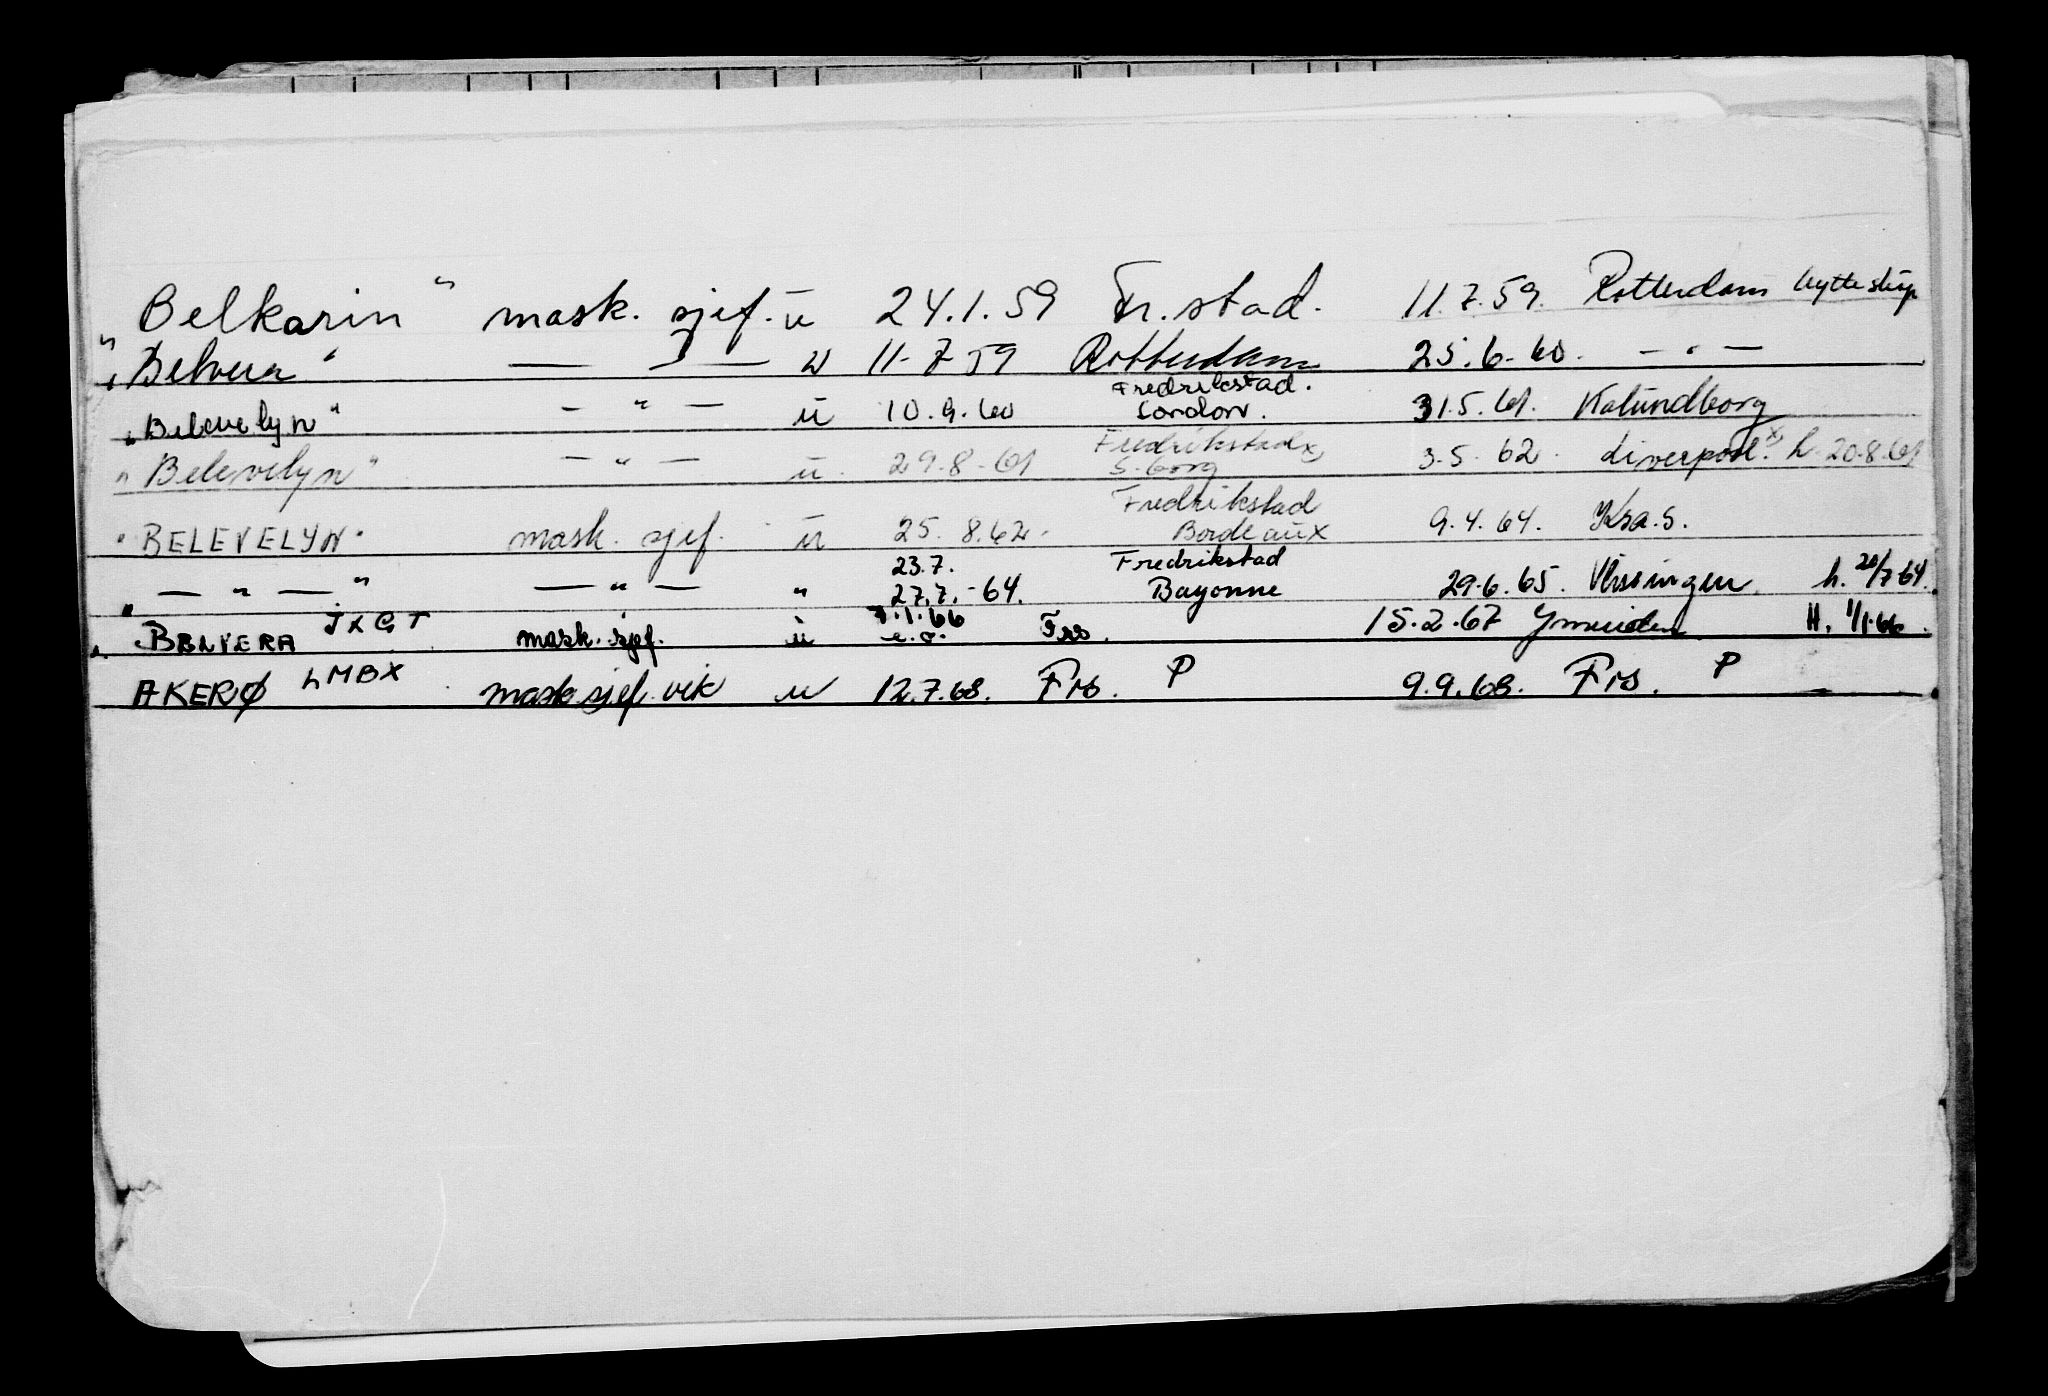 "Belkarin" mask. sjef. u 24.1.59 Fr.stad. 11.7.59. Rotterdam bytte skip
"Belvera" — " — u 11-7 59 Rotterdam 25.6-60. — " —
"Belevelyn" — " — u 10.9.60 Fredrikstad. London. 31.5.61. Kalundborg
"Belevelyn" — " — u. 29.8-61 Fredrikstad x) S.borg 3.5.62. Liverpool. x) h. 20.8.61
"BELEVELYN" mask. sjef. u 25.8.62. Fredrikstad Bordeaux 9.4.64. Kra.S.
— " — " — " — " 23.7. 27.7.-64. Fredrikstad Bayonne 29.6.65. Vlissingen. h. 20/7-64.
"BELVERA JXGT mask. sjef. u 7.1.66 e.o. Frs. 15.2.67 Ymuiden. H. 1/1.66.
AKERØ LMBX mask sjef. vik u 12.7.68. Frs. P 9.9.68. Frs. P —